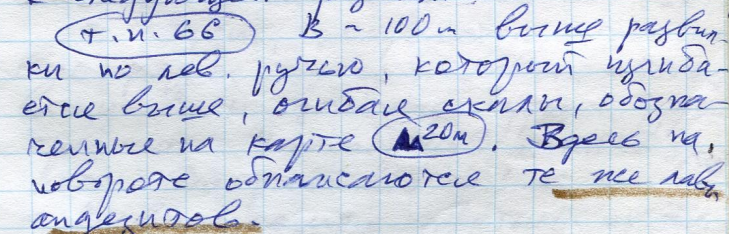 т.н. 66 В ~ 100 м выше развил-
ки по лев. ручью, который изгиба-
ется выше, огибая скалы, обозна-
ченные на карте 20м. Здесь на
повороте обнажаются те же лавы
андезитов.